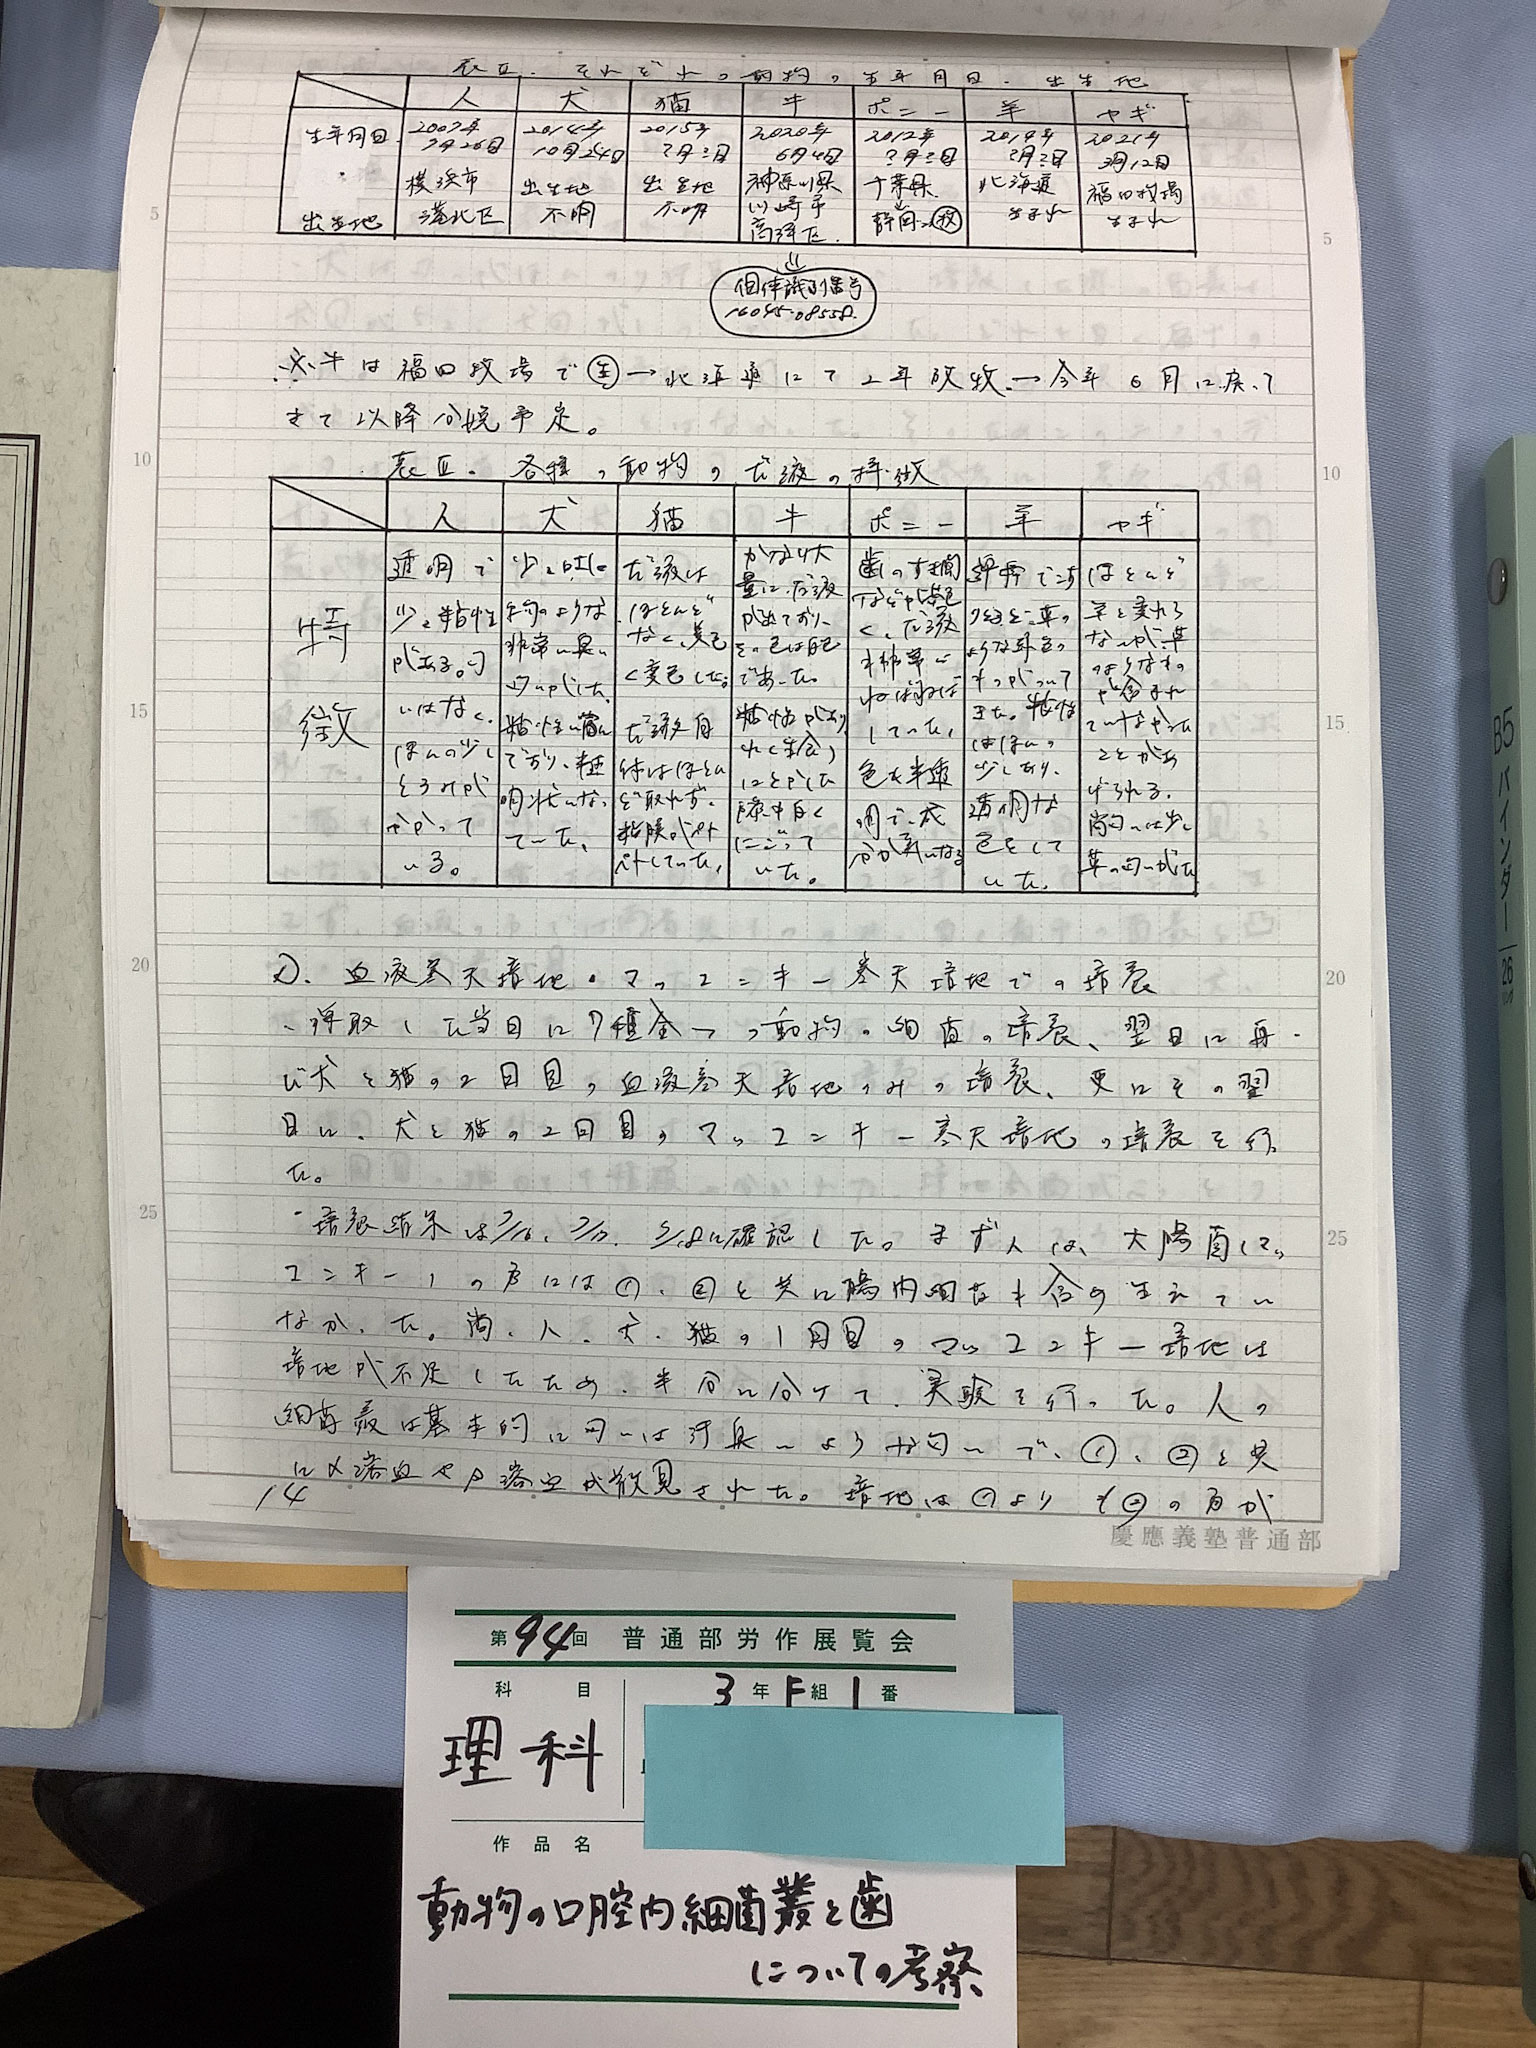 表Ⅱ. それぞれの動物の生年月日. 出生地
人 犬 猫 牛 ポニー 羊 ヤギ
生年月日・出生地
2007年7月26日 横浜市港北区
2014年10月24日 出生地不明
2015年?月?日 出生地不明
2020年6月4日 神奈川県川崎市高津区.
2012年?月?日 千葉県→静岡の牧
2019年?月?日 北海道生まれ
2021年3月12日 福田牧場生まれ
個体識別番号
16045-08558.
※牛は福田牧場で生→北海道にて2年放牧→今年6月に戻って
きて以降分娩予定。
表Ⅲ. 各種の動物のだ液の特徴
人 犬 猫 牛 ポニー 羊 ヤギ
特徴
透明で少々粘性がある。匂いはなく、ほんの少しとろみがかかっている。
だ液はほとんどなく、黄色く変色した。だ液自体はほとんど取れず、粘膜がベトベトしていた。
かなり大量にだ液が出ており、その色は白色であった。
歯のすき間などが茶色く、だ液も非常にねばねばしていた。色も半透明で、
ほとんど羊と変わらないが、草のようなものが含まれていなかったことがあげられる。尚匂いは少し草の匂いがした
2). 血液寒天培地・マッコンキー寒天培地での培養
・採取した当日に7種全ての動物の細菌の培養、翌日に再
び犬と猫の2回目の血液寒天培地のみの培養、更にその翌
日に、犬と猫の2回目のマッコンキー寒天培地の培養を行っ
た。
・培養結果は に確認した。まず人は、大腸菌(マッ
コンキー)の方には①、②と共に腸内細菌も含め生えてい
なかった。尚、人、犬、猫の1回目のマッコンキー培地は
培地が不足したため、半分に分けて、実験を行った。人の
細菌叢は基本的に匂いは汗臭いような匂いで、①、②と共
にα溶血やβ溶血が散見された。培地は①よりも②の方が
14
慶應義塾普通部
第94回 普通部労作展覧会
科目 3年F組1番
理科
作品名
動物の口腔内細菌叢と歯
についての考察
B5 バインダー 26
5 10 15 20 25
5 10 15 20 25